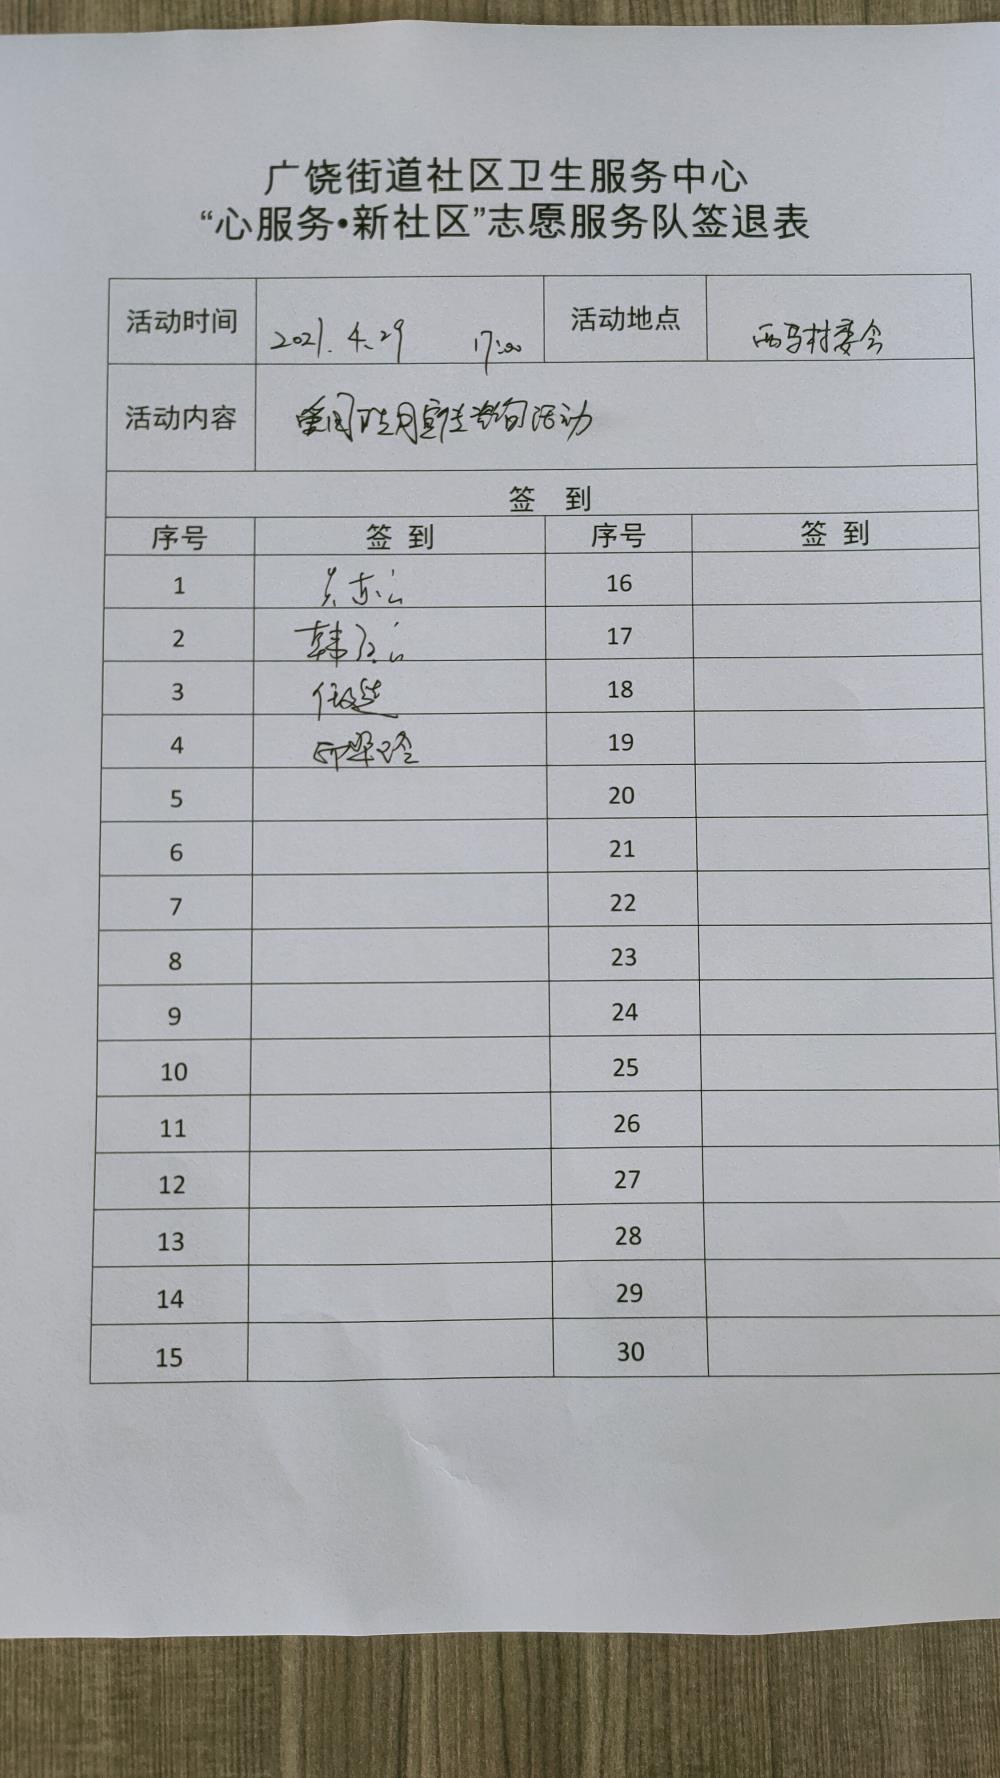 广饶街道社区卫生服务中心
“心服务•新社区”志愿服务队签退表
活动时间 2021.4.29 17:00 活动地点 西马村委会
活动内容 爱国卫生月宣传咨询活动
签 到
序号 签到 序号 签到
1 16
2 韩 17
3 任 18
4 19
5 20
6 21
7 22
8 23
9 24
10 25
11 26
12 27
13 28
14 29
15 30